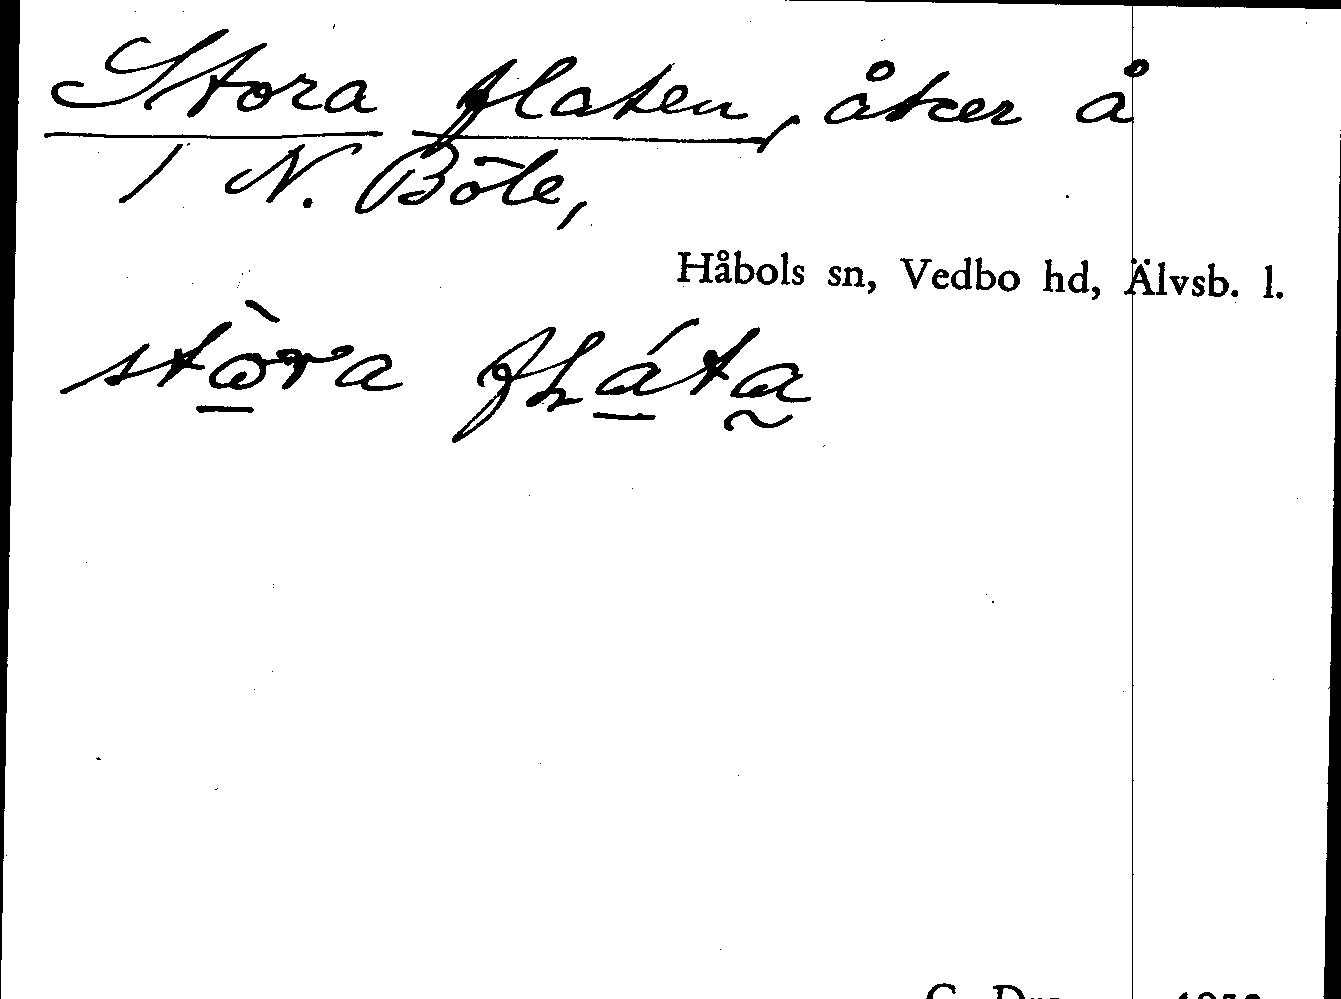 Stora flaten, åker å
1 N. Böle,
Håbols sn, Vedbo hd, Älvsb. l.
stòra fłáta